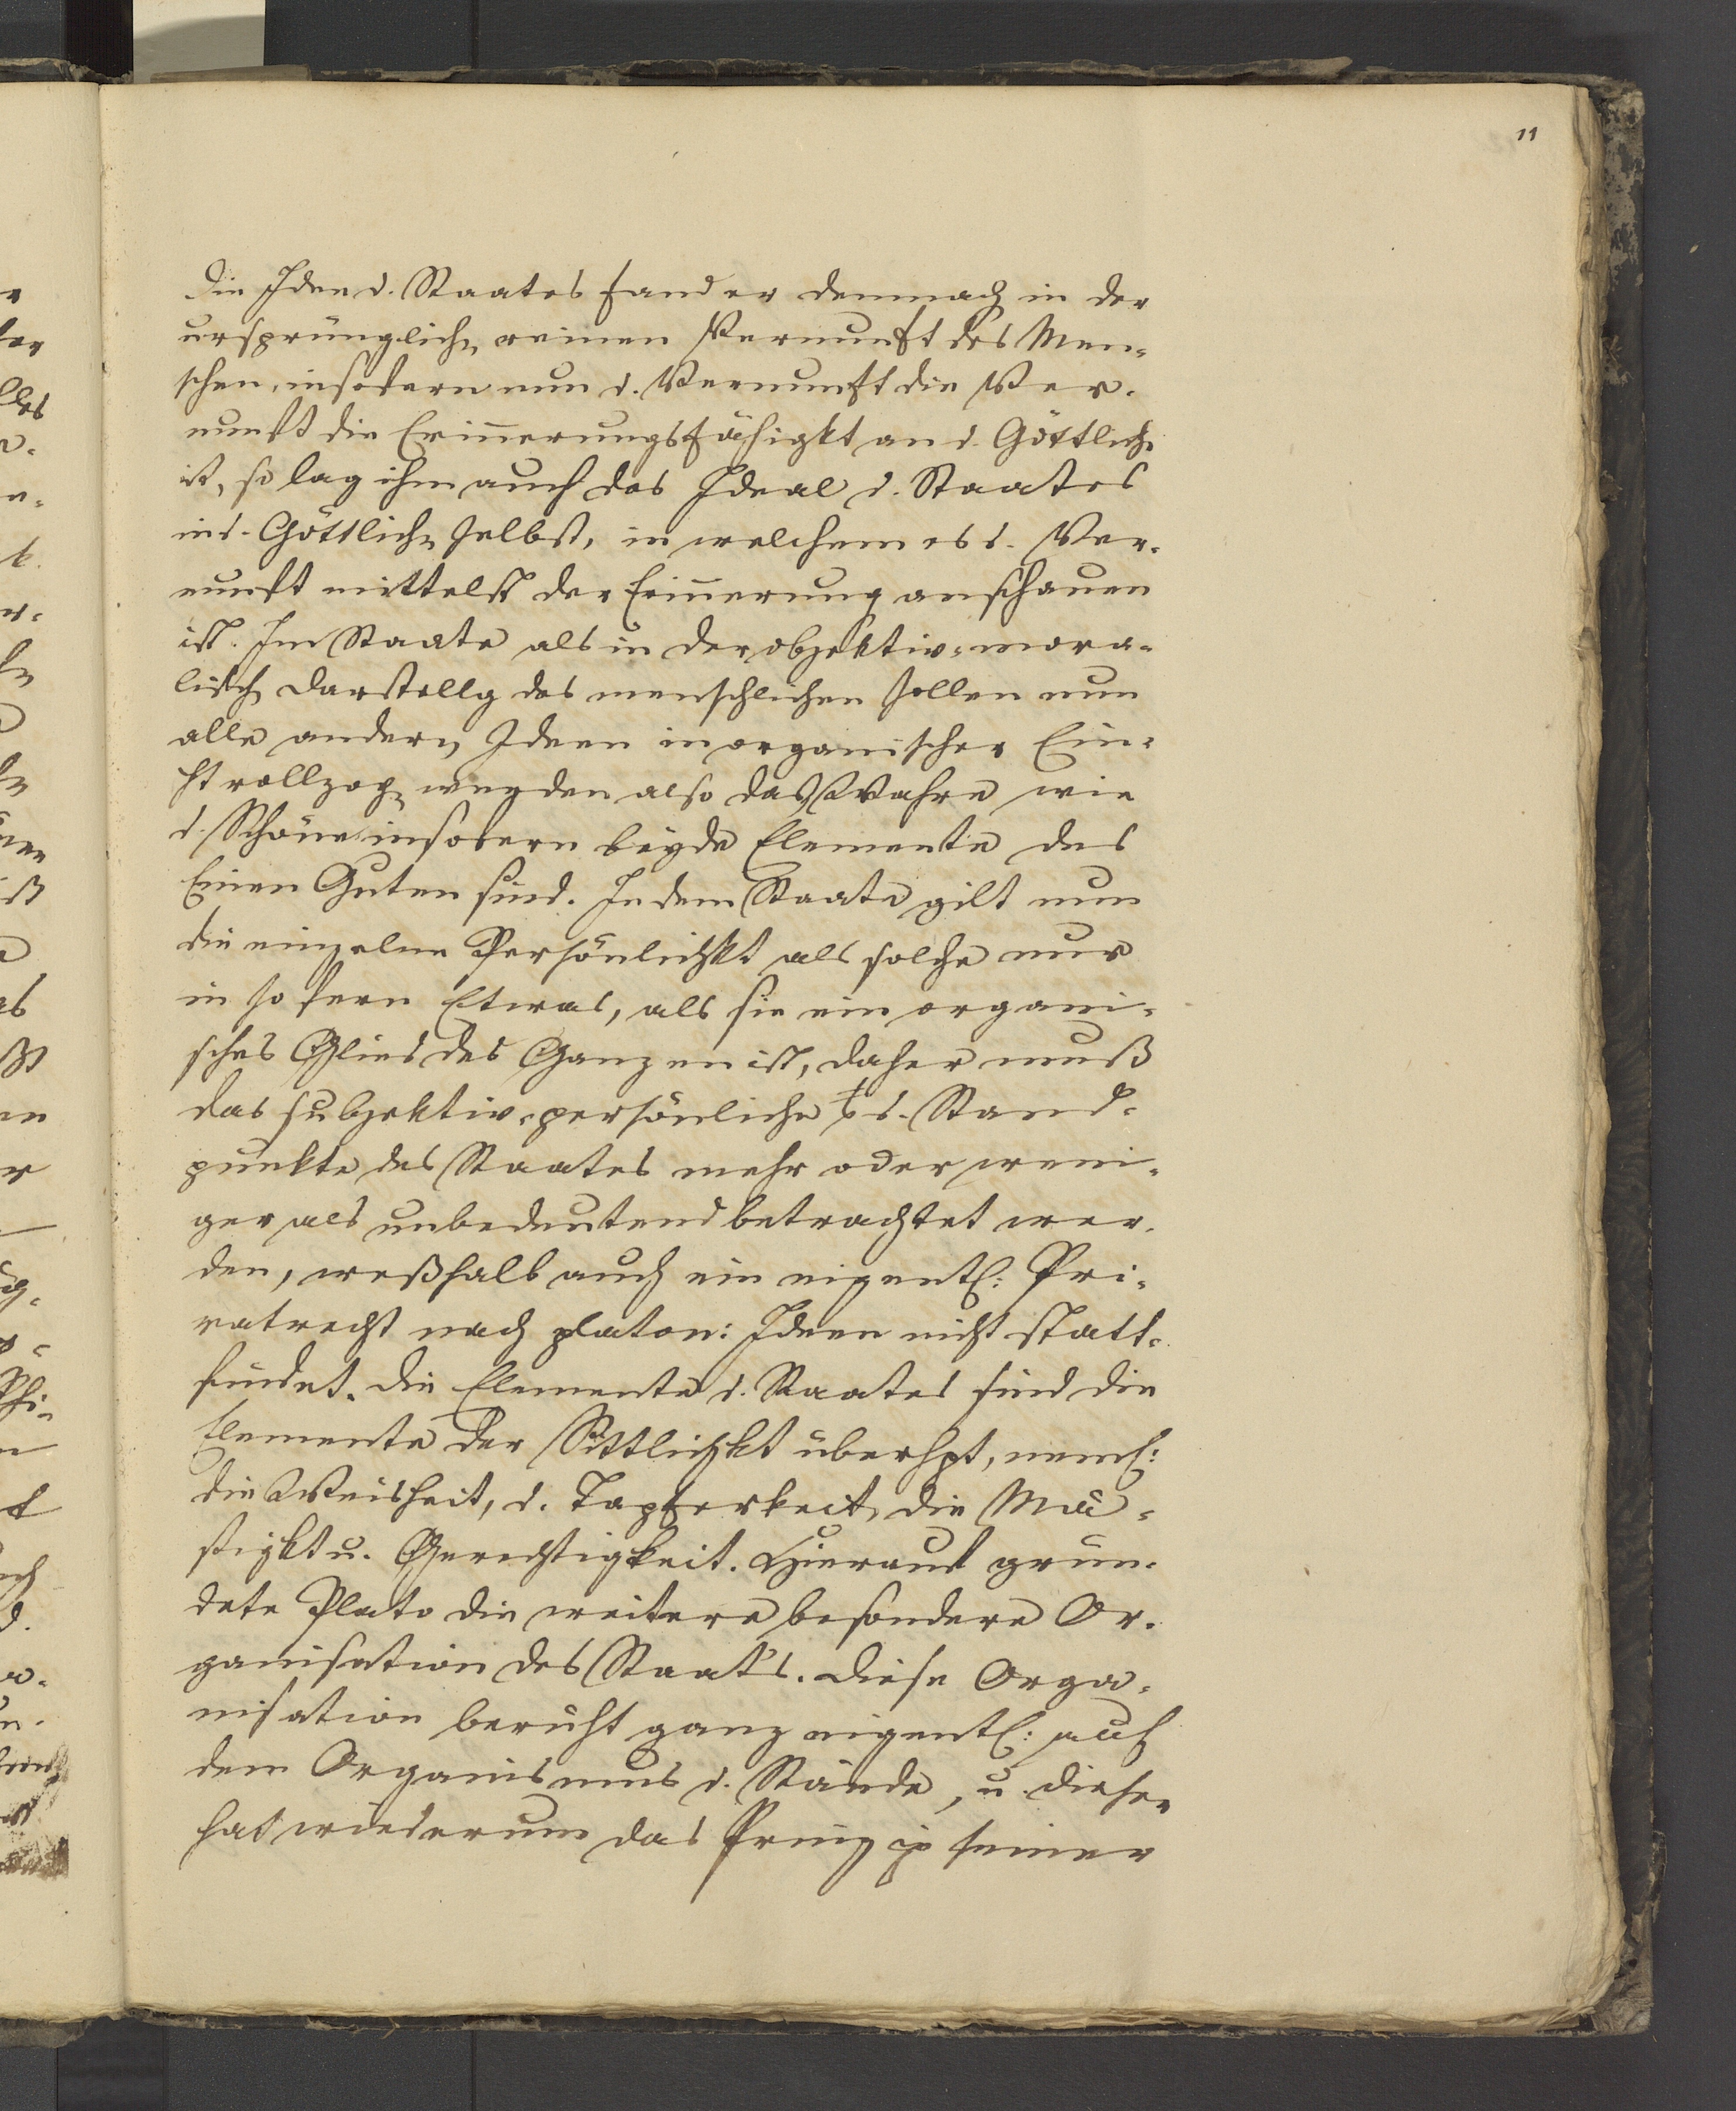 11
Die Idee d. Staates fand er demnach in der
ursprünglichen reinen Vernunft des Men-
schen, insofern nun d. Vernunft die Ver-
nunft die Erinnerungsfähigkt an d. Göttliche
ist, so lag ihm auch das Ideal d. Staates
in d. Göttlichen selbst, in welchem es d. Ver-
nunft mittelst der Erinnerung anschauen
ist. Im Staate als in der objektiv-mora-
lischen Darstellg des menschlichen sollen nun
alle andern Ideen in organischer Ein-
ht vollzogen werden also das Wahre wie
d. Schöne insofern beyde Elemente des
Einen Guten sind. In dem Staate gilt nun
die einzelne Persönlichkt als solche nur
in so fern Etwas, als sie ein organi-
sches Glied des Ganzen ist, daher muß
das subjektiv-persönliche d. Stand-
punkte des Staates mehr oder weni-
ger als unbedeutend betrachtet wer-
den, weßhalb auch ein eigentl: Pri-
vatrecht nach platon: Ideen nicht statt-
findet. Die Elemente d. Staates sind die
Elemente der Sittlichkt überhpt, neml:
die Weisheit, d. Tapferkeit, die Mä-
ßigkt u. Gerechtigkeit. Hierauf grün-
dete Plato die weitere besondere Or-
ganisation des Staats. Diese Orga-
nisation beruht ganz eigentl: auf
dem Organismus d. Stände, u. dieser
hat wiederum das Prinzip seiner